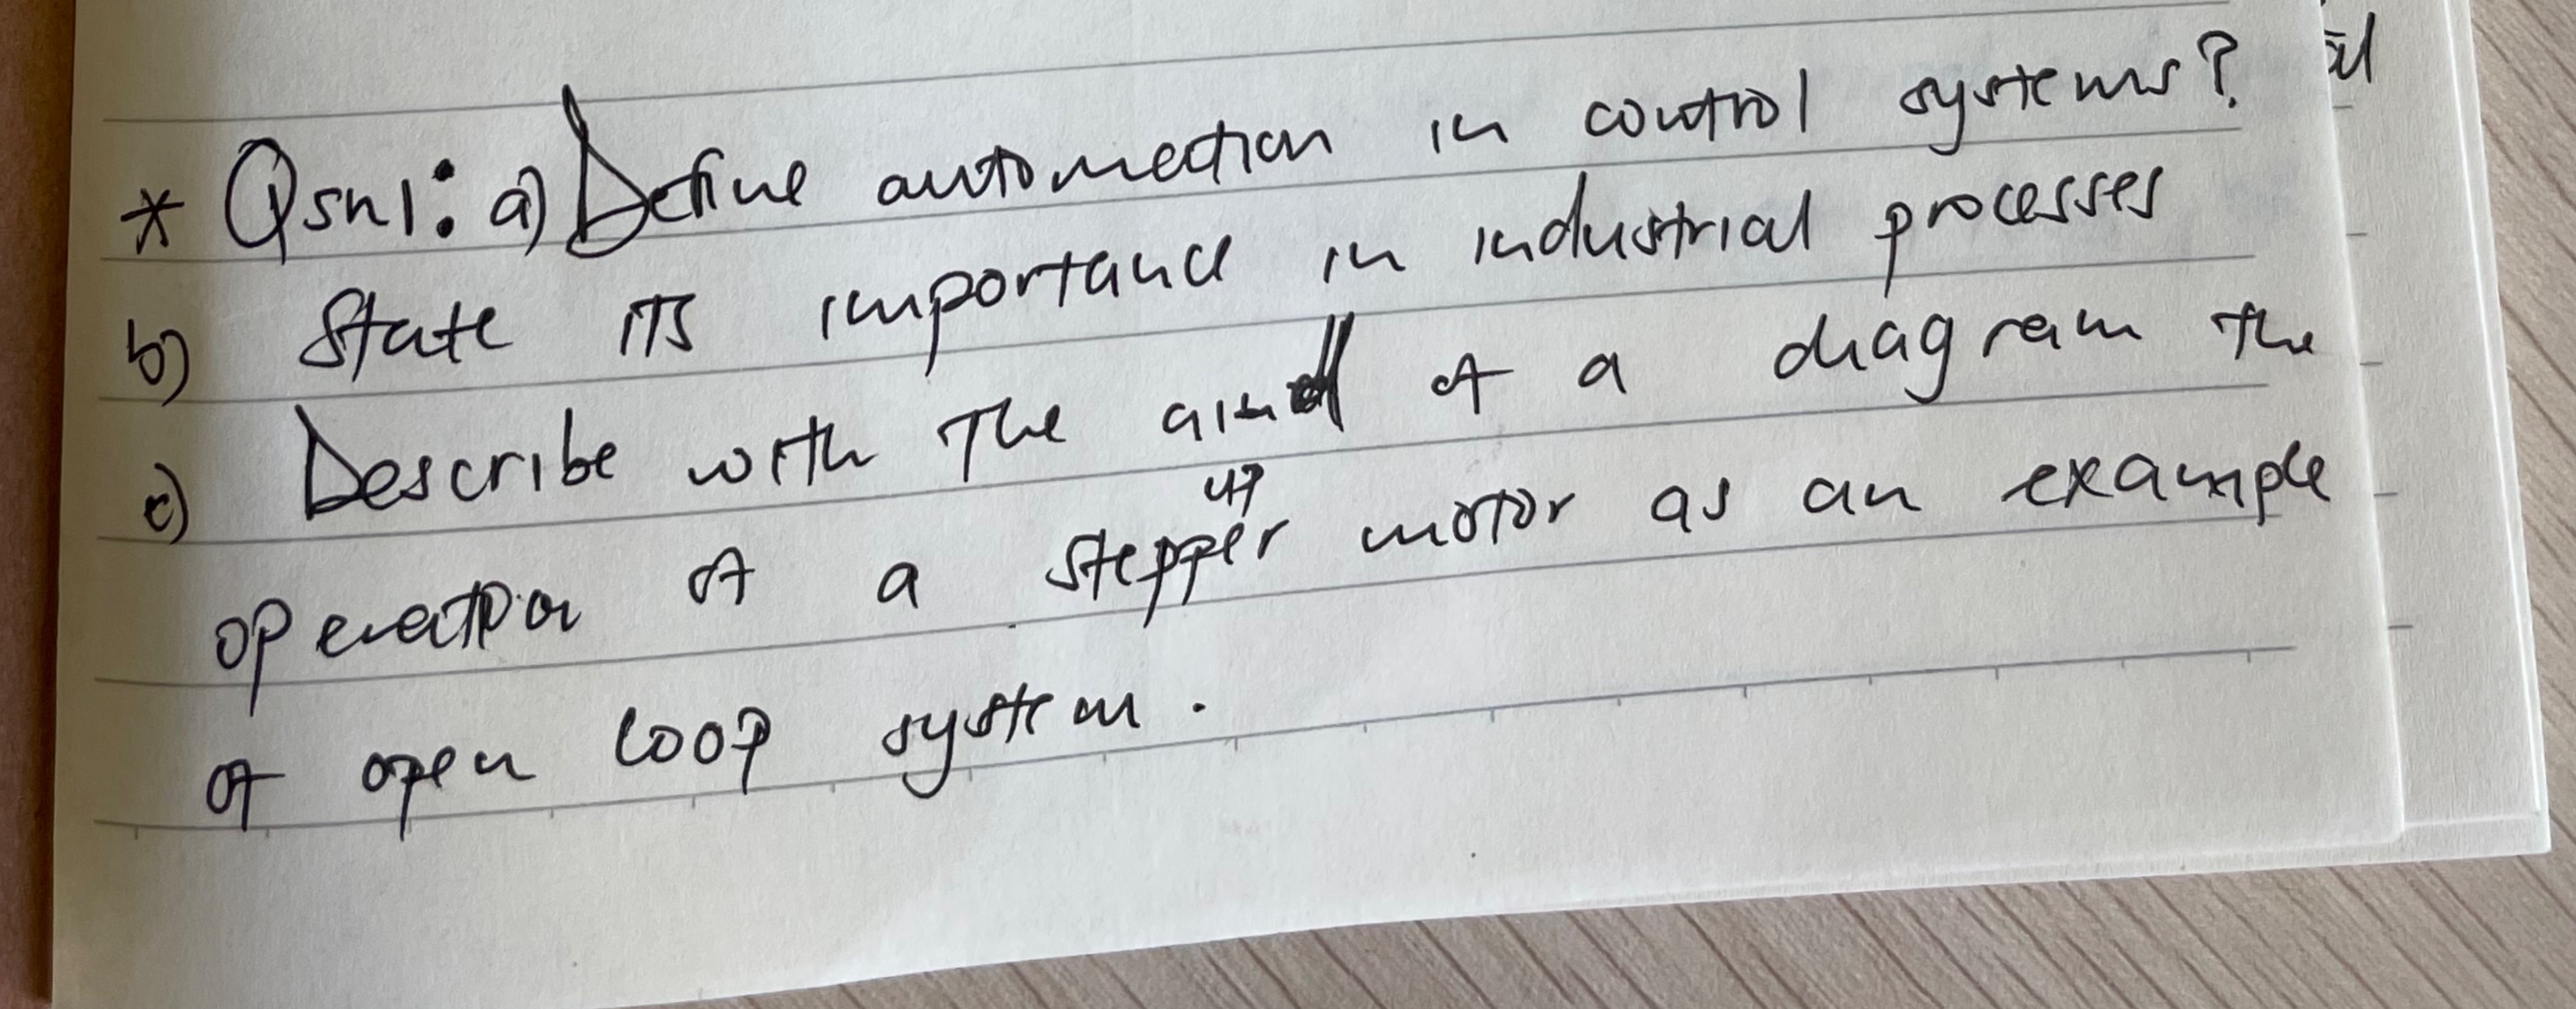 * Qsn1: a) Define automation in control systems?
b) State its importance in industrial processes
c) Describe with the aid of a diagram the
operation of a stepper motor as an example
of open loop system.